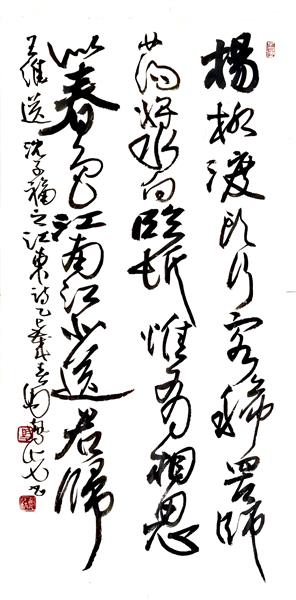 楊柳渡頭行客稀罟師
蕩漿向臨圻惟有相思
似春色江南江北送君歸
王維送沈子福之江東詩乙巳歲春